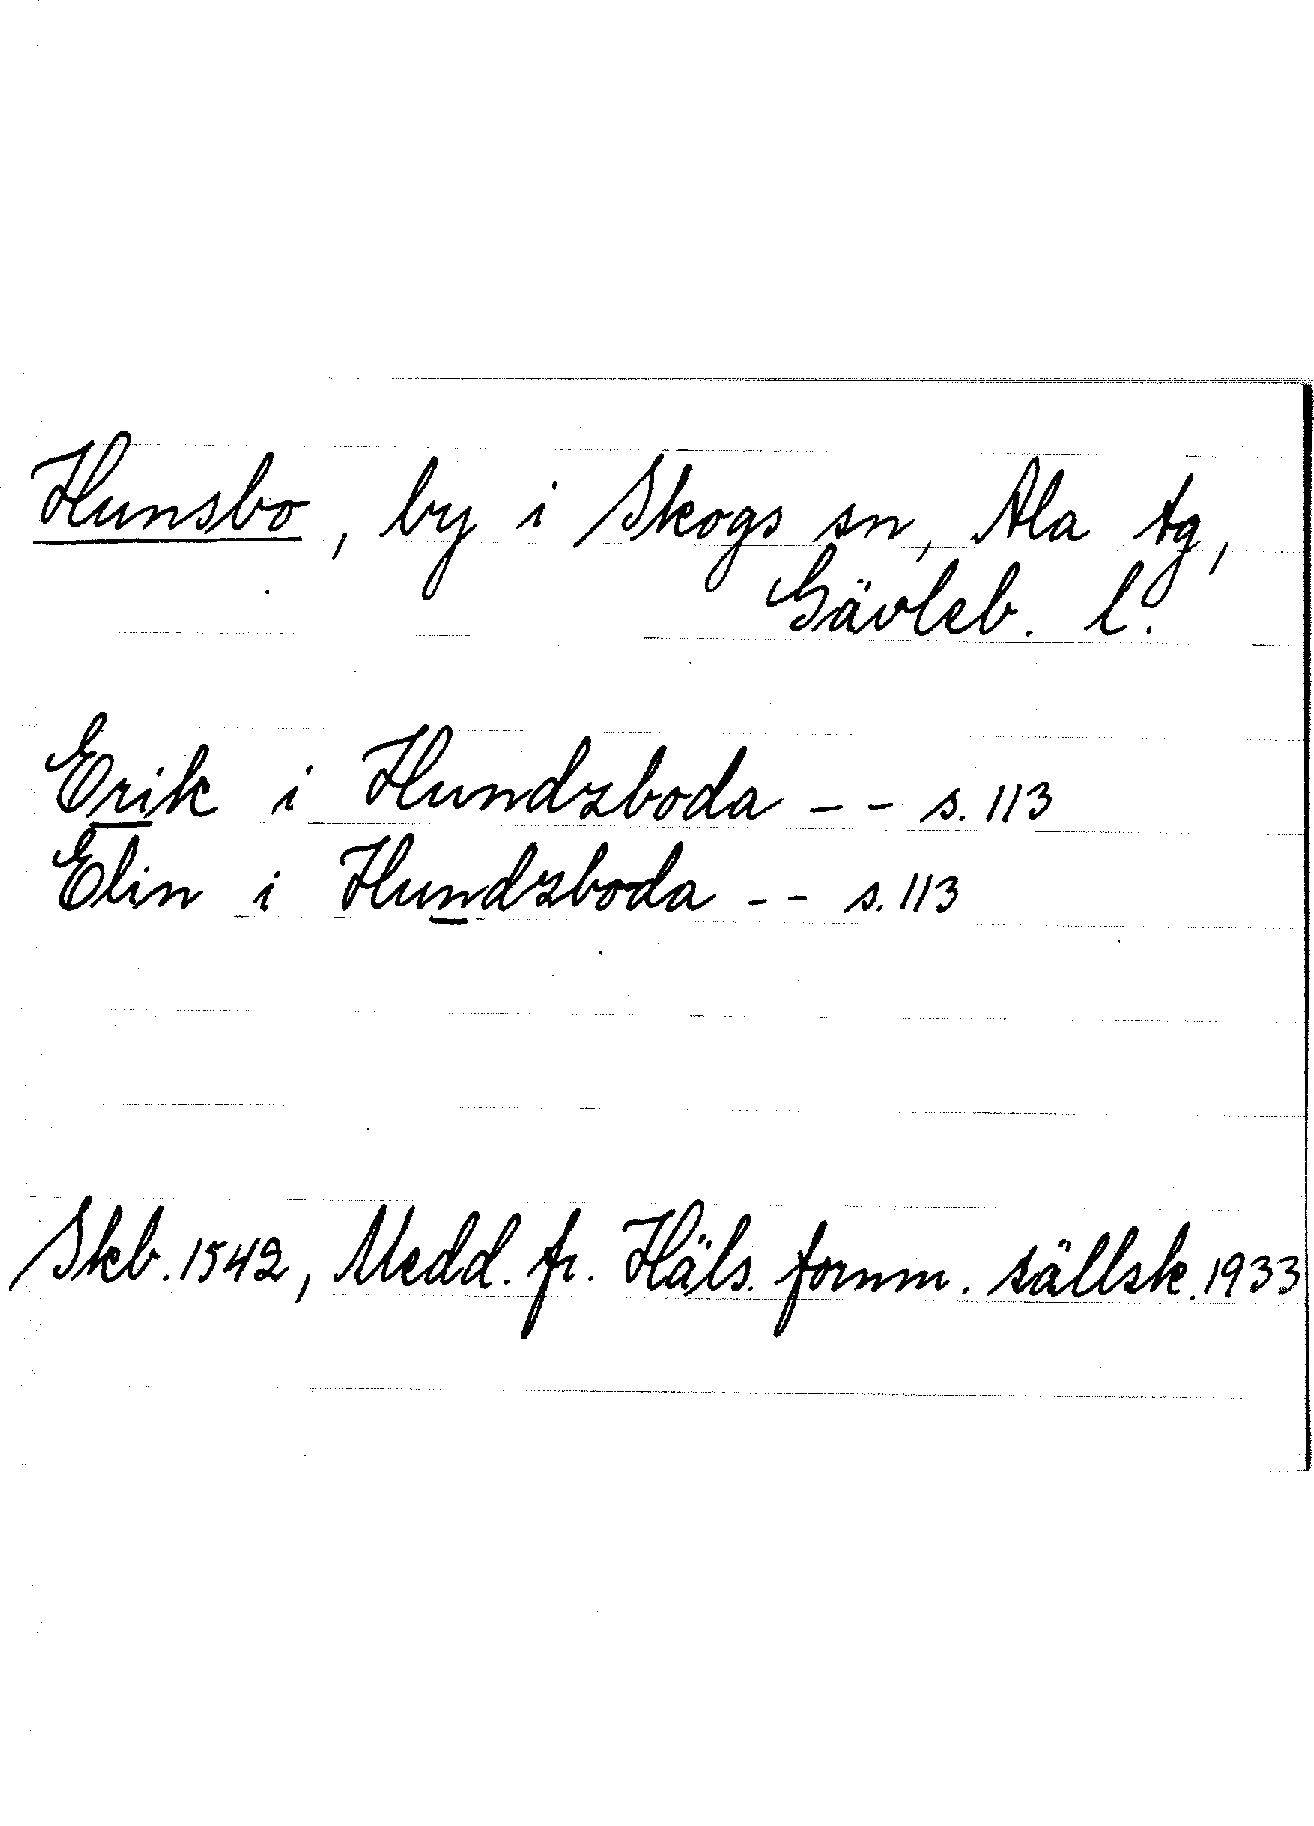 Hunsbo, by i Skogs sn, Ala tg,
Gävleb. l.
Erik i Hundzboda -- s. 113
Elin i Hundzboda -- s. 113
Skb. 1542, Medd. fr. Häls. fornm. sällsk. 1933